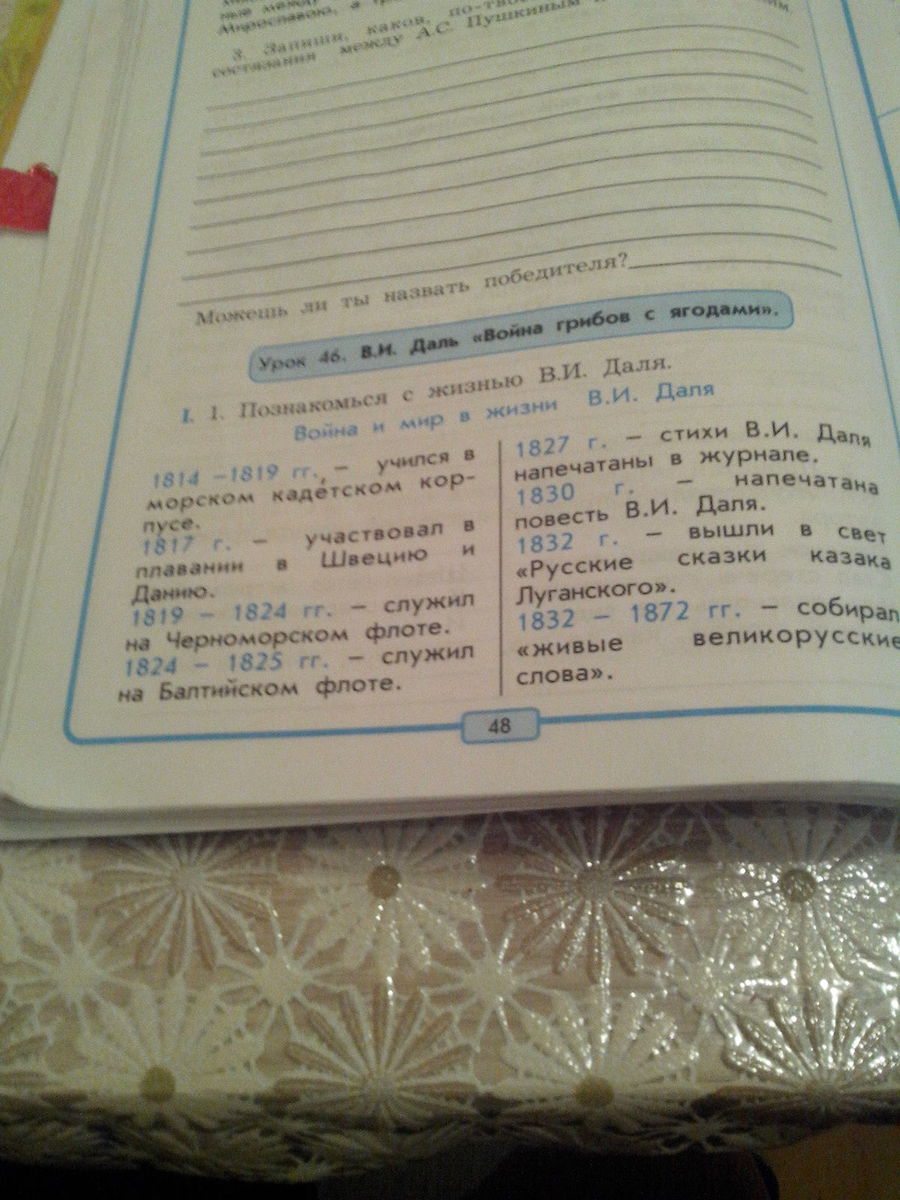 Мирославою, а
3. Запиши, каков,
состязания между А.С. Пушкиным
Можешь ли ты назвать победителя?
Урок 46. В.И. Даль «Война грибов с ягодами».
I. 1. Познакомься с жизнью В.И. Даля.
Война и мир в жизни В.И. Даля
1814 –1819 гг., – учился в
морском кадетском кор-
пусе.
1817 г. – участвовал в
плавании в Швецию и
Данию.
1819 – 1824 гг. – служил
на Черноморском флоте.
1824 – 1825 гг. – служил
на Балтийском флоте.
1827 г. – стихи В.И. Даля
напечатаны в журнале.
1830 г. – напечатана
повесть В.И. Даля.
1832 г. – вышли в свет
«Русские сказки казака
Луганского».
1832 – 1872 гг. – собирал
«живые великорусские
слова».
48